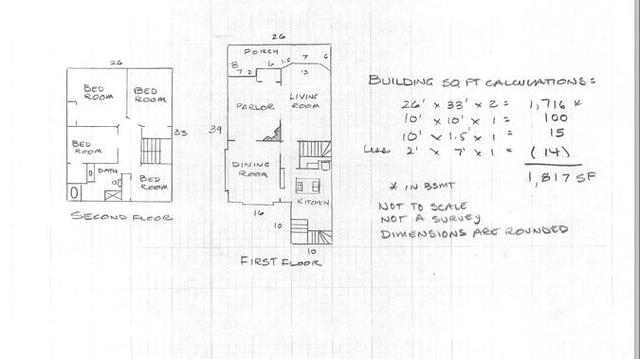 26
BED ROOM
BED ROOM
33
BED ROOM
BATH
BED ROOM
SECOND FLOOR
26
PORCH
8
7
2
6
1.5
7
6
13
PARLOR
LIVING ROOM
39
DINING ROOM
KITCHEN
16
10
10
FIRST FLOOR
BUILDING SQ FT CALCULATIONS:
26' x 33' x 2 = 1,716 *
10' x 10' x 1 = 100
10' x 1.5' x 1 = 15
Less 2' x 7' x 1 = (14)
1,817 SF
* IN BSMT
NOT TO SCALE
NOT A SURVEY
DIMENSIONS ARE ROUNDED